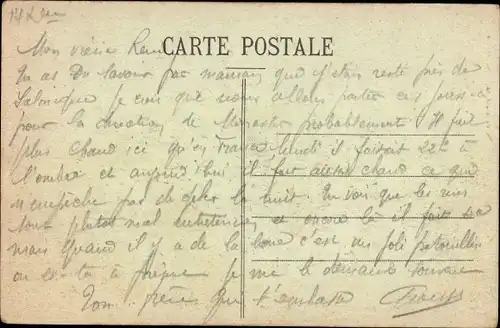 Mon vieux
CARTE POSTALE
Tu as Du Savoir par maman que j'étais resté près de
Salonique je crois que nous allons partir ces jours-ci
pour la direction de Monastir probablement Il fait
plus chaud ici qu'en France lundi il faisait 22° à
l'ombre et aujourd'hui il fait aussi chaud ce qui
n'empêche pas de geler la nuit. Tu vois que les
sont plutot mal et encore là il fait
mais Quand il y a de la boue c'est un joli
je me le demande souvent
Ton frère qui t'embrasse